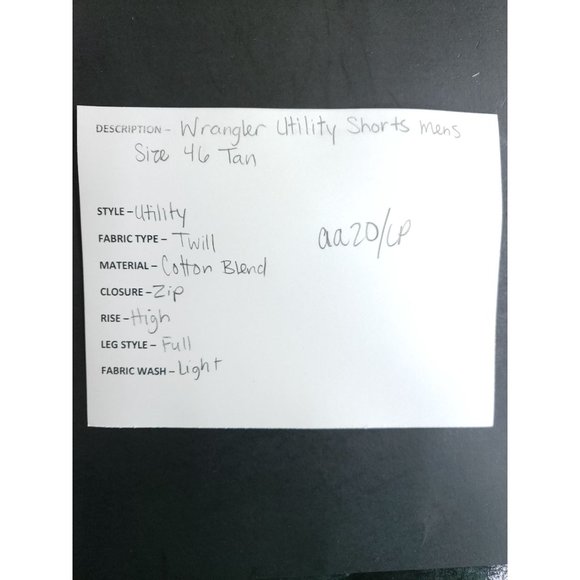 DESCRIPTION - Wrangler Utility Shorts mens
Size 46 Tan
STYLE - Utility
FABRIC TYPE - Twill
aa20/LP
MATERIAL - Cotton Blend
CLOSURE - Zip
RISE - High
LEG STYLE - Full
FABRIC WASH - Light